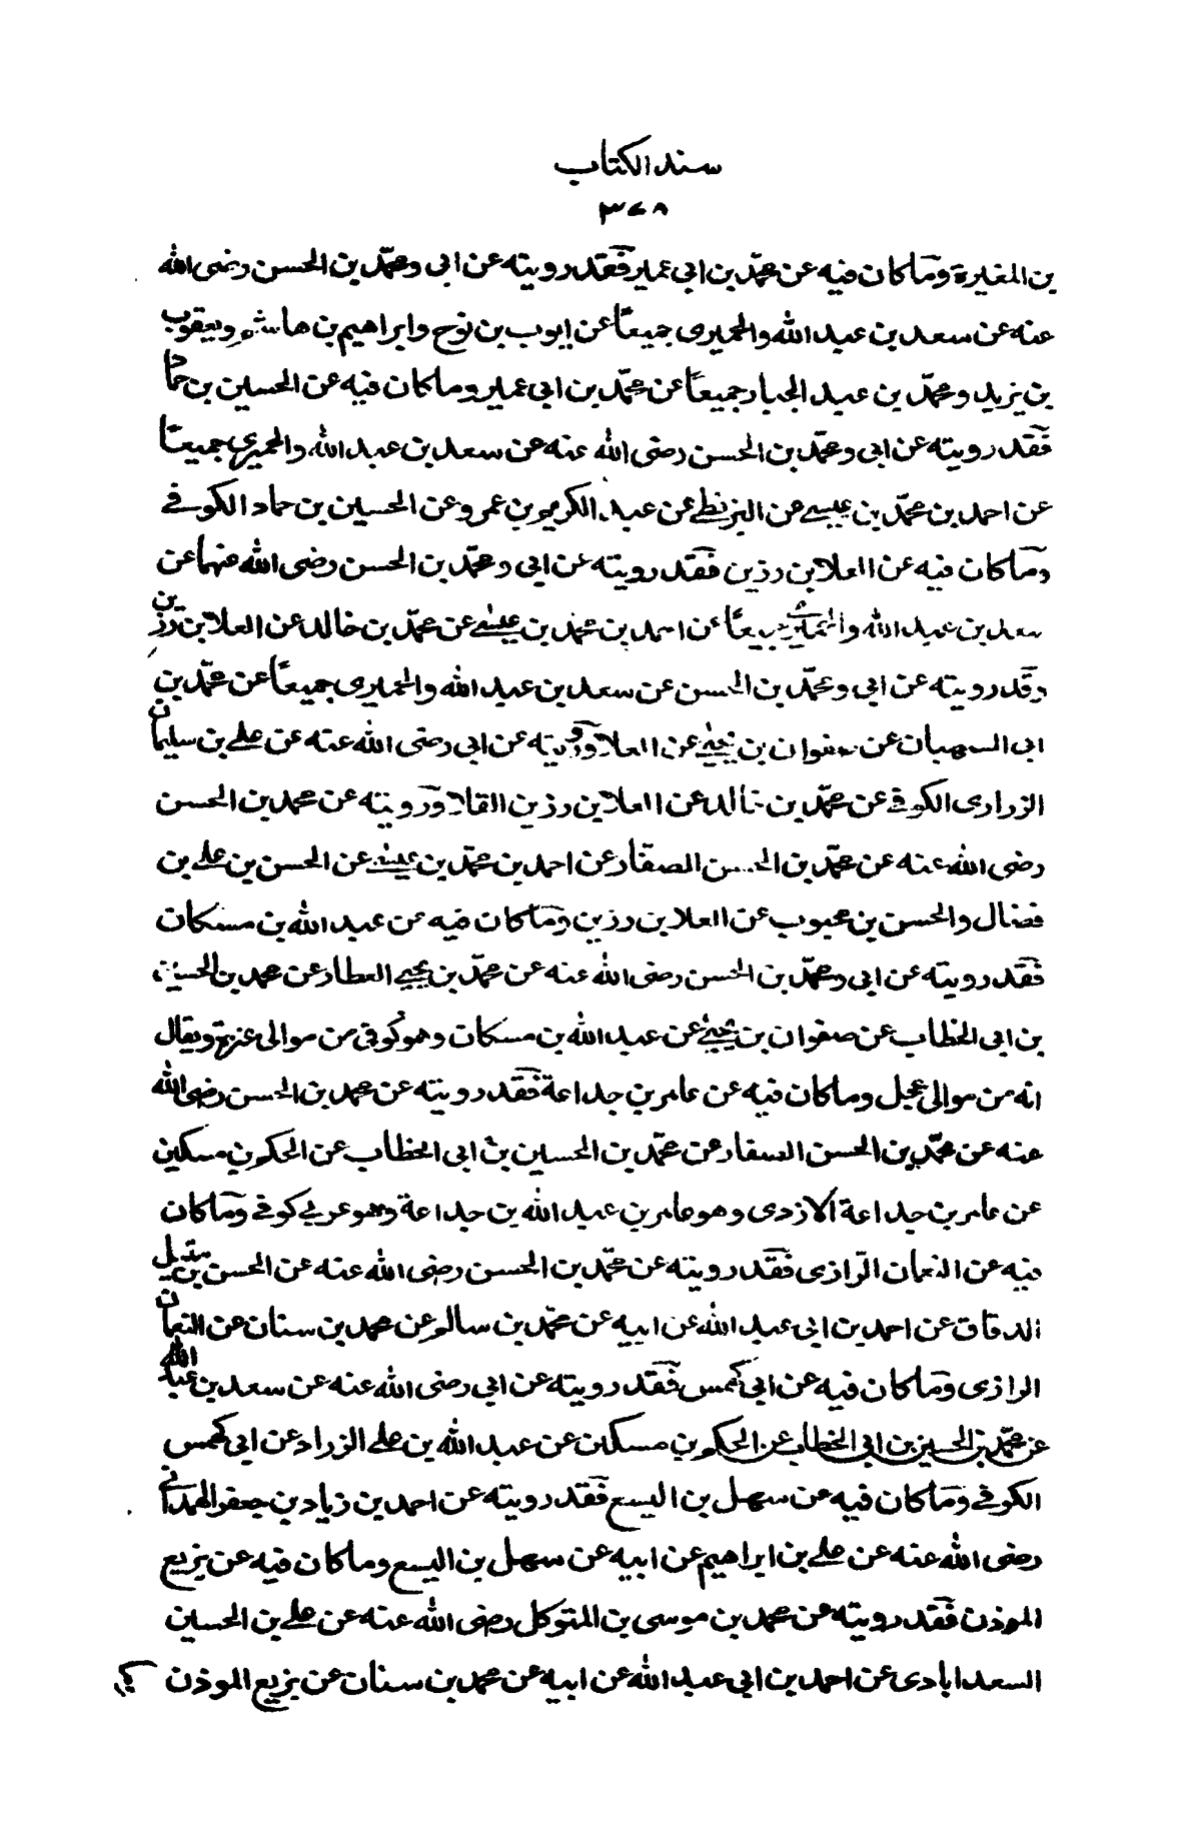 سند الكتاب
٣٧٨
بن المغيرة ومّا كان فيه عن محمّد بن ابى عمير فقد رويته عن ابى ومحمّد بن الحسن رضى الله
عنه عن سعد بن عبد الله والحميرى جميعًا عن ايوب بن نوح وابراهيم بن هاشم ويعقوب
بن يزيد ومحمّد بن عبد الجبار جميعًا عن محمّد بن ابى عمير وما كان فيه عن الحسين بن حماد
فقد رويته عن ابى ومحمّد بن الحسن رضى الله عنه عن سعد بن عبد الله والحميرى جميعًا
عن احمد بن محمّد بن عيسى عن البزنطى عن عبد الكريم بن عمرو عن الحسين بن حماد الكوفى
ومّا كان فيه عن العلا بن رزين فقد رويته عن ابى ومحمّد بن الحسن رضى الله عنهما عن
سعد بن عبد الله والحميرى جميعًا عن احمد بن محمد بن عيسى عن محمّد بن خالد عن العلا بن رزين
وقد رويته عن ابى ومحمّد بن الحسن عن سعد بن عبد الله والحميرى جميعًا عن محمّد بن
ابى الصهبان عن صفوان بن يحيى عن العلا ورويته عن ابى رضى الله عنه عن على بن سليمان
الزرارى الكوفى عن محمّد بن خالد عن العلا بن رزين القلا ورويته عن محمد بن الحسن
رضى الله عنه عن محمّد بن الحسن الصفار عن احمد بن محمّد بن عيسى عن الحسن بن على بن
فضال والحسن بن محبوب عن العلا بن رزين ومّا كان فيه عن عبد الله بن مسكان
فقد رويته عن ابى ومحمّد بن الحسن رضى الله عنه عن محمّد بن يحيى العطار عن محمد بن الحسين
بن ابى الخطاب عن صفوان بن يحيى عن عبد الله بن مسكان وهو كوفى من موالى عنزة ويقال
انه من موالى عجل وما كان فيه عن عامر بن جداعة فقد رويته عن محمد بن الحسن رضى الله
عنه عن محمّد بن الحسن الصفار عن محمّد بن الحسين بن ابى الخطاب عن الحكم بن مسكين
عن عامر بن جداعة الازدى وهو عامر بن عبد الله بن جداعة وهو عربى كوفى ومّا كان
فيه عن النعمان الرّازى فقد رويته عن محمّد بن الحسن رضى الله عنه عن الحسن بن متيل
الدقاق عن احمد بن ابى عبد الله عن ابيه عن محمّد بن سالم عن محمد بن سنان عن النعمان
الرازى ومّا كان فيه عن ابى كهمس فقد رويته عن ابى رضى الله عنه عن سعد بن عبد الله
عن محمّد بن الحسين بن ابى الخطاب عن الحكم بن مسكين عن عبد الله بن على الزراد عن ابى كهمس
الكوفى ومّا كان فيه عن سهل بن اليسع فقد رويته عن احمد بن زياد بن جعفر الهمدانى
رضى الله عنه عن على بن ابراهيم عن ابيه عن سهل بن اليسع وما كان فيه عن بزيع
الموذن فقد رويته عن محمد بن موسى بن المتوكل رضى الله عنه عن على بن الحسين
السعدابادى عن احمد بن ابى عبد الله عن ابيه عن محمد بن سنان عن بزيع الموذن